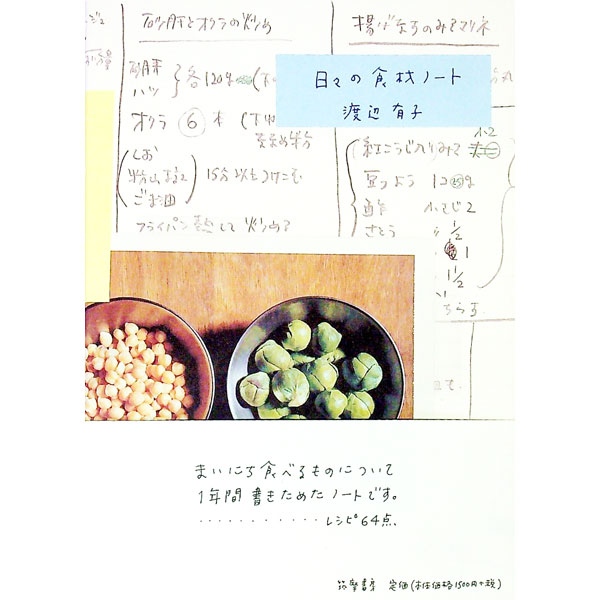 砂肝とオクラの炒め
揚げなすのみそマリネ
日々の食材ノート
渡辺有子
砂肝
ハツ
各120g
オクラ ⑥ 本
ななめ半分
しお
ごま油
15分以上つけこむ
フライパン熱して炒める
豆
酢 小さじ2
さとう 〃 1/2
〃 1
〃 1 1/2
ちらす
まいにち食べるものについて
1年間書きためたノートです。
・・・・・・・・・・・・レシピ64点、
筑摩書房 定価(本体価格1500円+税)